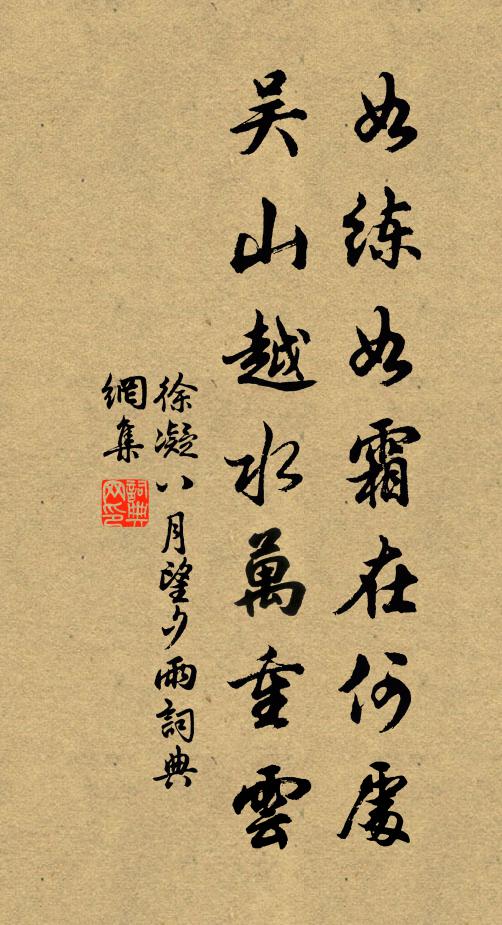 如練如霜在何處
吳山越水萬重雲
徐凝八月望夕雨詞典
網集
詞典
网印